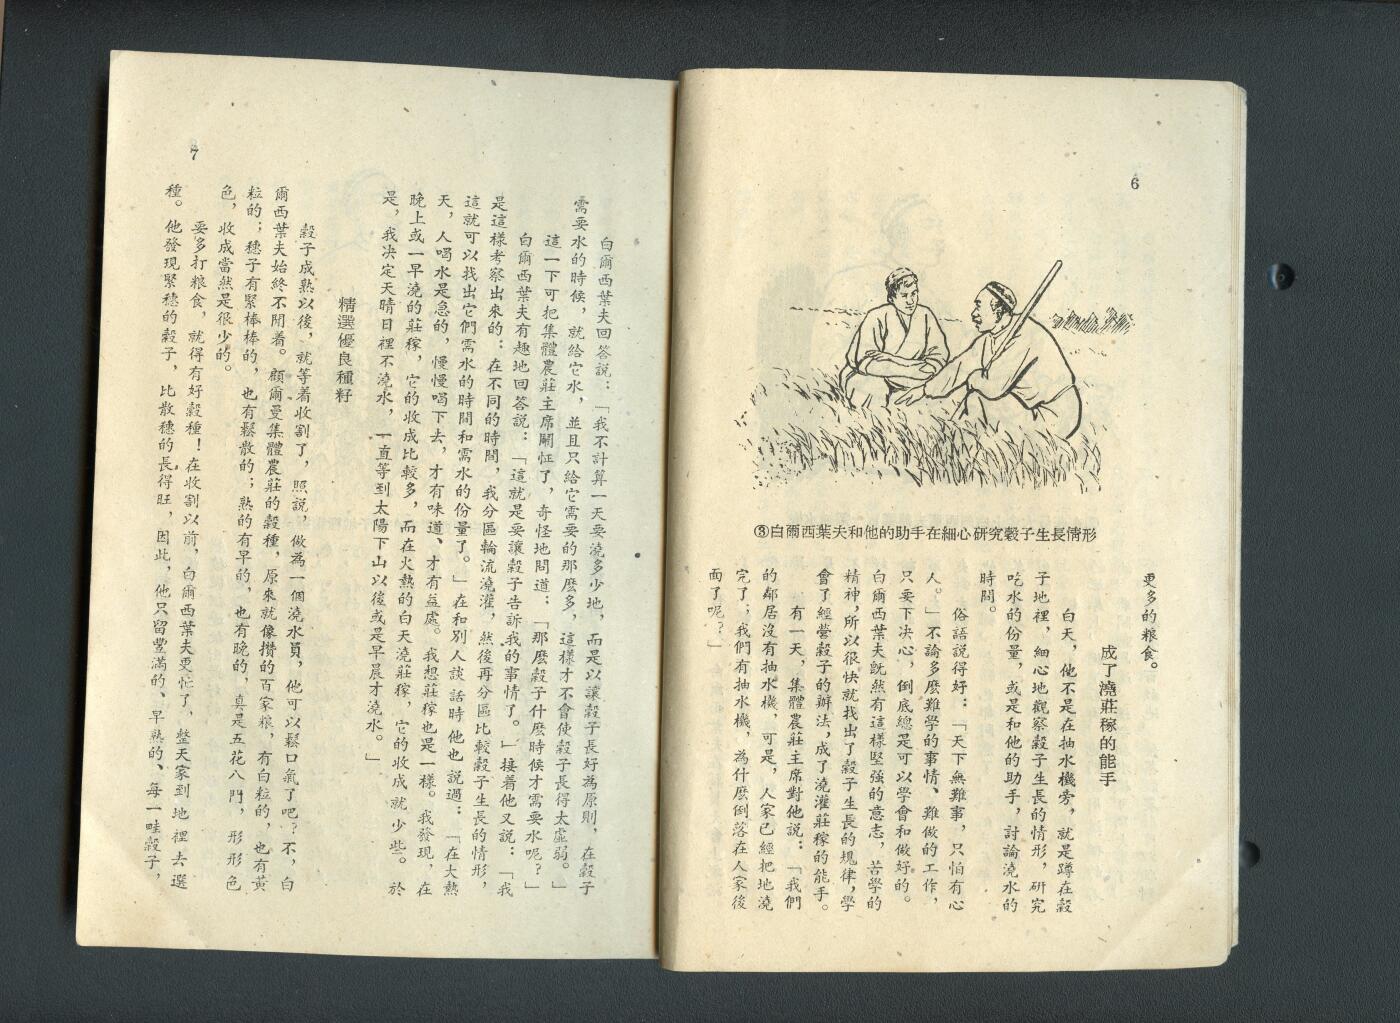 6
③白爾西葉夫和他的助手在細心研究穀子生長情形
更多的粮食。
成了澆莊稼的能手
白天，他不是在抽水機旁，就是蹲在穀
子地裡，細心地觀察穀子生長的情形，研究
吃水的份量，或是和他的助手，討論澆水的
時間。
俗語説得好：「天下無難事，只怕有心
人。」不論多麽難學的事情、難做的工作，
只要下决心，倒底總是可以學會和做好的。
白爾西葉夫既然有這樣堅強的意志，苦學的
精神，所以很快就找出了穀子生長的規律，學
會了經營穀子的辦法，成了澆灌莊稼的能手。
有一天，集體農莊主席對他説：「我們
的鄰居没有抽水機，可是，人家已經把地澆
完了；我們有抽水機，為什麽倒落在人家後
面了呢？」
7
白爾西葉夫回答説：「我不計算一天要澆多少地，而是以讓穀子長好為原則，在穀子
需要水的時候，就給它水，並且只給它需要的那麽多，這樣才不會使穀子長得太虛弱。」
這一下可把集體農莊主席鬧怔了，奇怪地問道：「那麽穀子什麽時候才需要水呢？」
白爾西葉夫有趣地回答説：「這就是要讓穀子告訴我的事情了。」接着他又説：「我
是這樣考察出來的：在不同的時間，我分區輪流澆灌，然後再分區比較穀子生長的情形，
這就可以找出它們需水的時間和需水的份量了。」在和别人談話時他也説過：「在大熱
天，人喝水是急的，慢慢喝下去，才有味道、才有益處。我想莊稼也是一樣。我發現，在
晚上或一早澆的莊稼，它的收成比較多，而在火熱的白天澆莊稼，它的收成就少些。於
是，我决定天晴日裡不澆水，一直等到太陽下山以後或是早晨才澆水。」
精選優良種籽
穀子成熟以後，就等着收割了，照説，做為一個澆水員，他可以鬆口氣了吧？不，白
爾西葉夫始終不閒着。顧爾曼集體農莊的穀種，原來就像攢的百家粮，有白粒的，也有黄
粒的；穗子有緊棒棒的，也有鬆散的；熟的有早的，也有晚的，真是五花八門，形形色
色，收成當然是很少的。
要多打粮食，就得有好穀種！在收割以前，白爾西葉夫更忙了，整天家到地裡去選
種。他發現緊穗的穀子，比散穗的長得旺，因此，他只留豐滿的、早熟的、每一畦穀子，